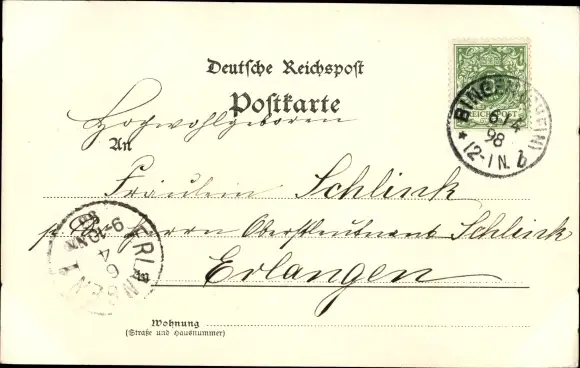 Deutsche Reichspost
Postkarte
REICHSPOST
BINGEN (RHEIN)
6/4
98
* 12-1 N.
Hochwohlgeboren
An
Fräulein Schlink
p. Herrn Oberstleutnant Schlink
in Erlangen
ERLANGEN
6
4
9-10
98
Wohnung
(Straße und Hausnummer)